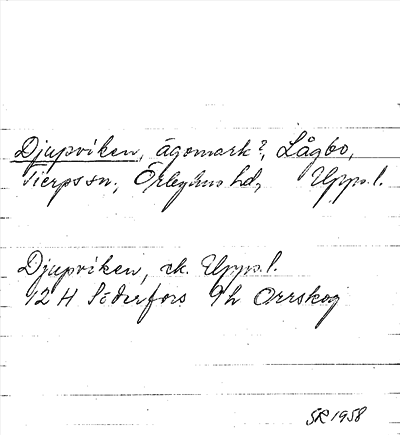 Djupviken, ägomark?, Lågbo,
Tierps sn, Örbyhus hd, Upps.l.
Djupviken, ek. Upps.l.
12 H Söderfors 9h Orrskog
SR 1958